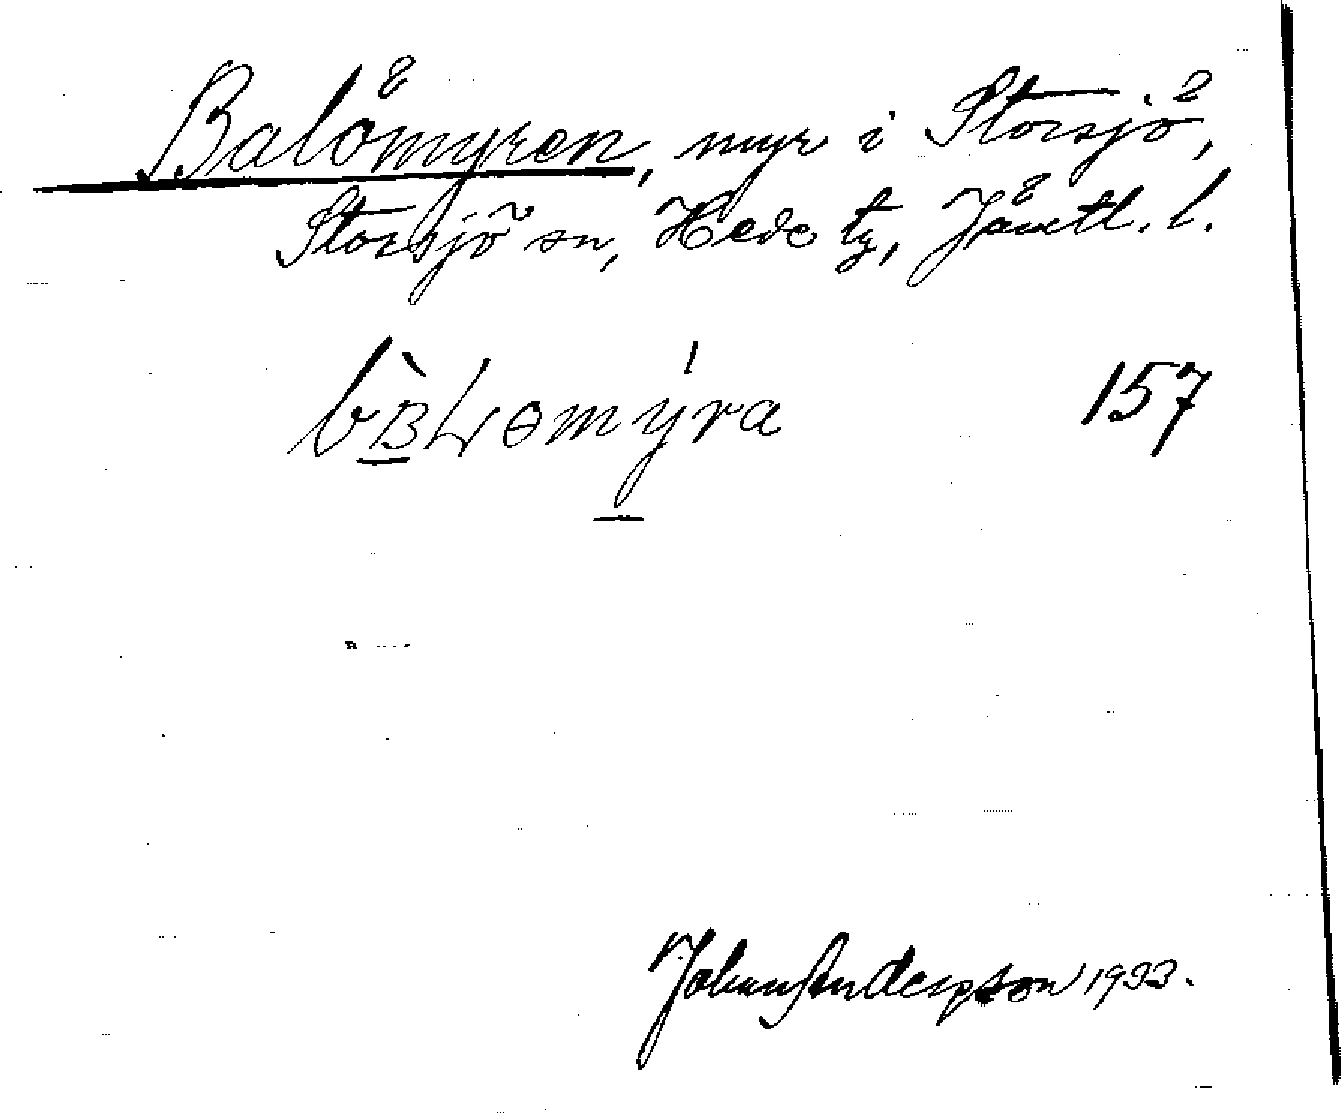 Balåmyren, myr i Storsjö,
Storsjö sn, Hede tg, Jämtl. l.
157
Johan Anderson 1933.